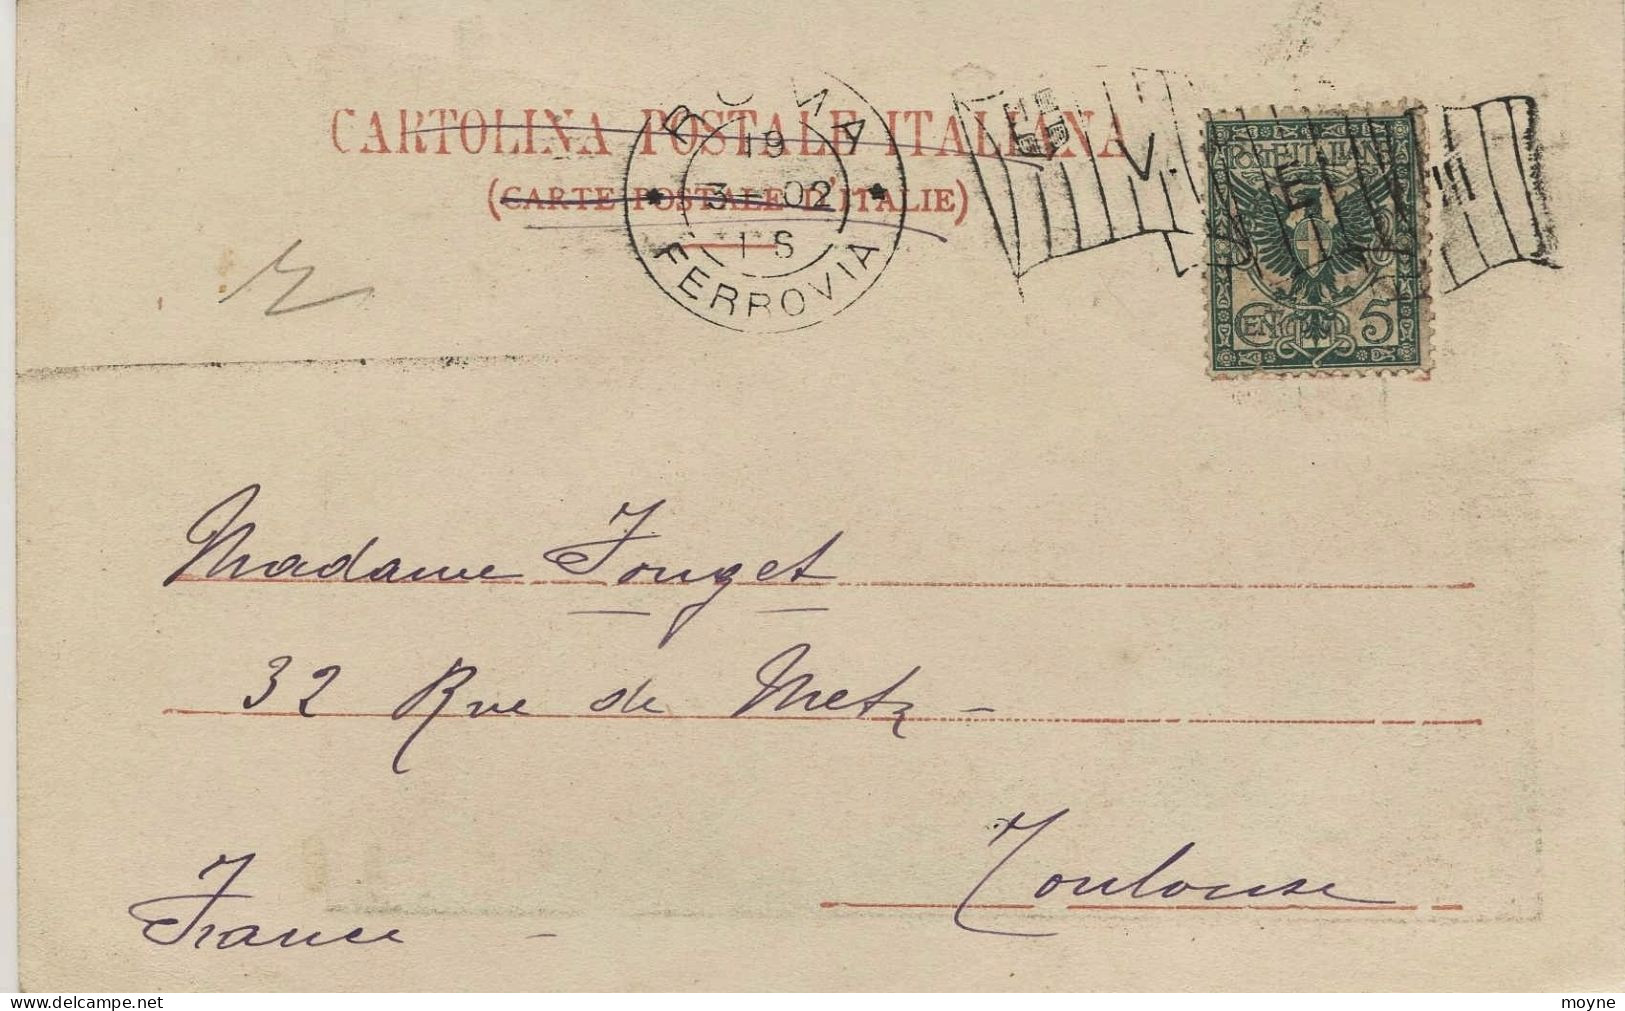 CARTOLINA POSTALE ITALIANA
(CARTE POSTALE D'ITALIE)
ROMA
19
3 - 02
1S
FERROVIA
POSTE ITALIANE
CENTESIMI 5
Madame Fouget
32 Rue de Metz -
Toulouse
France -
delcampe.net
moyne